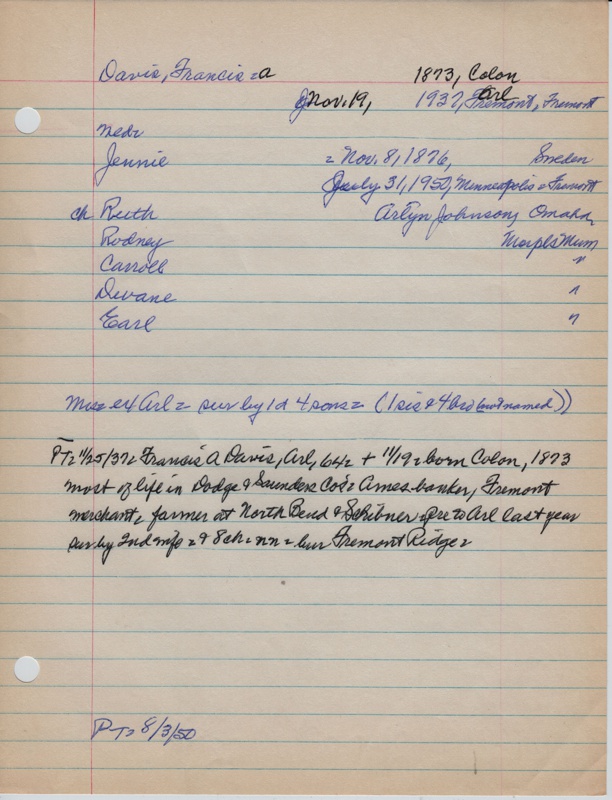 Davis, Francis = a 1873, Colon
Nov. 19, 1937, Fremont, Arl Fremont
Jennie = Nov. 8, 1876, Sweden
July 31, 1950, Minneapolis = Fremont
ch Ruth Arlyn Johnson, Omaha
Rodney
Carroll "
Dwane "
Earl "
ex Arl = sur by 1d 4 sons = (1 sis & 4 bro (not named))
PT = 11/25/37 = Francis A Davis, Arl, 64 = + 11/19 = born Colon, 1873
most of life in Dodge & Saunders Cos = Ames banker, Fremont
merchant, farmer at North Bend & Scribner = to Arl last year
sur by 2nd wife = & 8 ch = nn = bur Fremont Ridge =
PT = 8/3/50